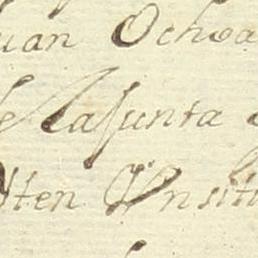 uan Ochoa
e la Junta
Iten Vn siti